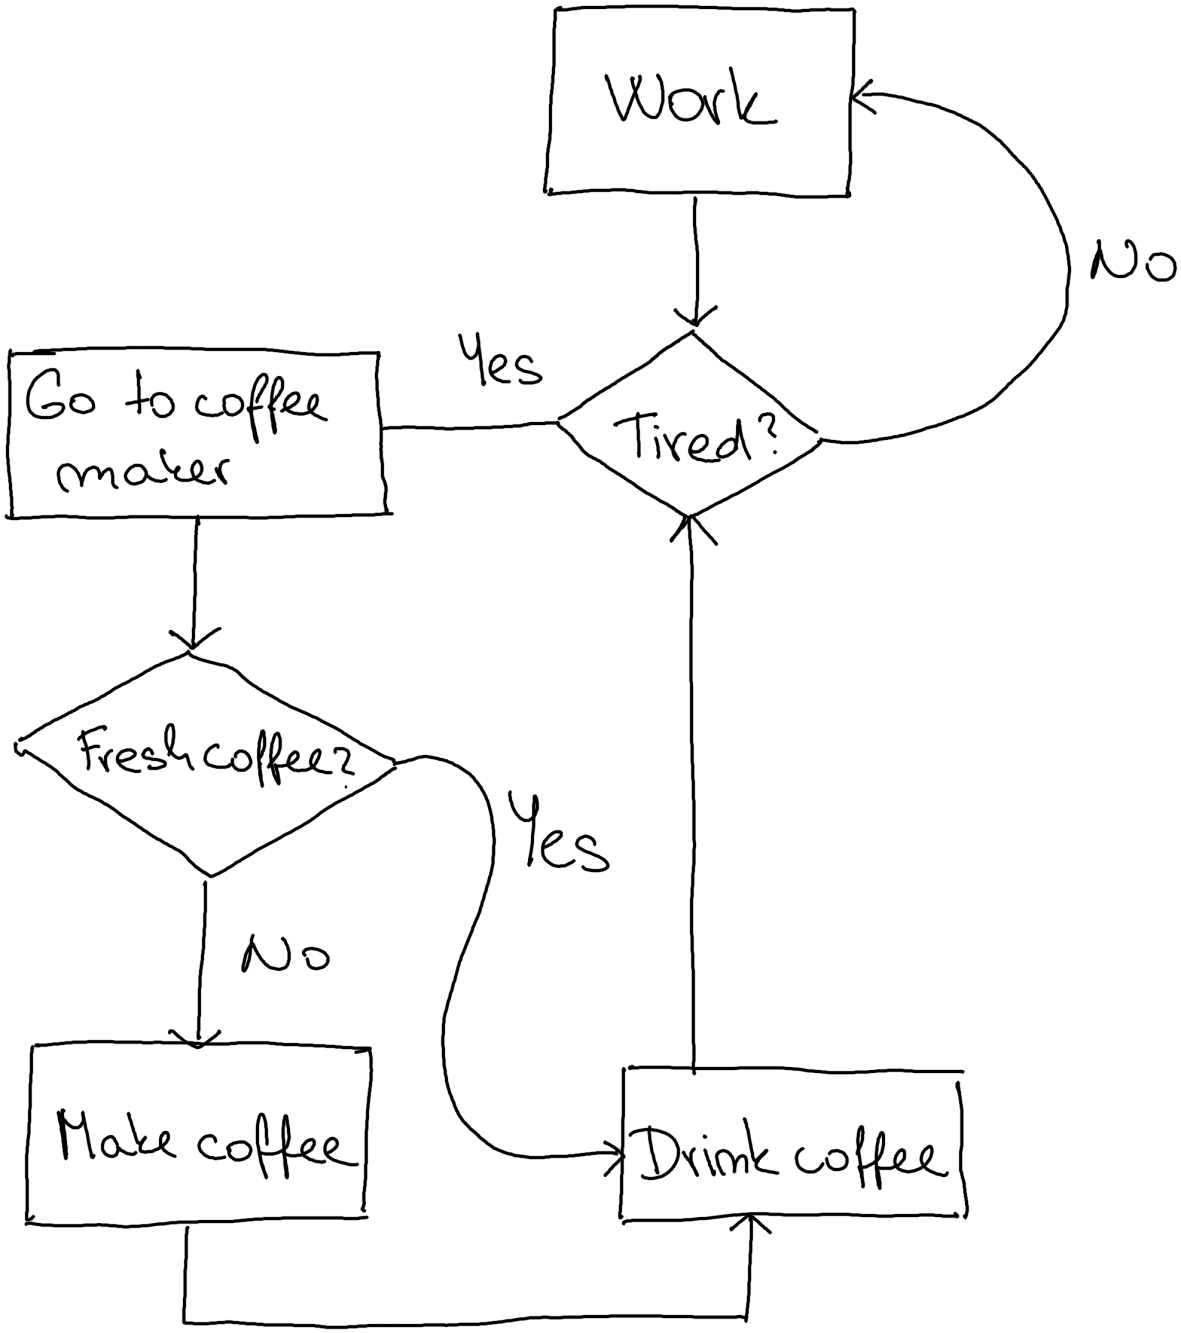 Work
No
Yes
Go to coffee
maker
Tired?
Fresh coffee?
Yes
No
Make coffee
Drink coffee